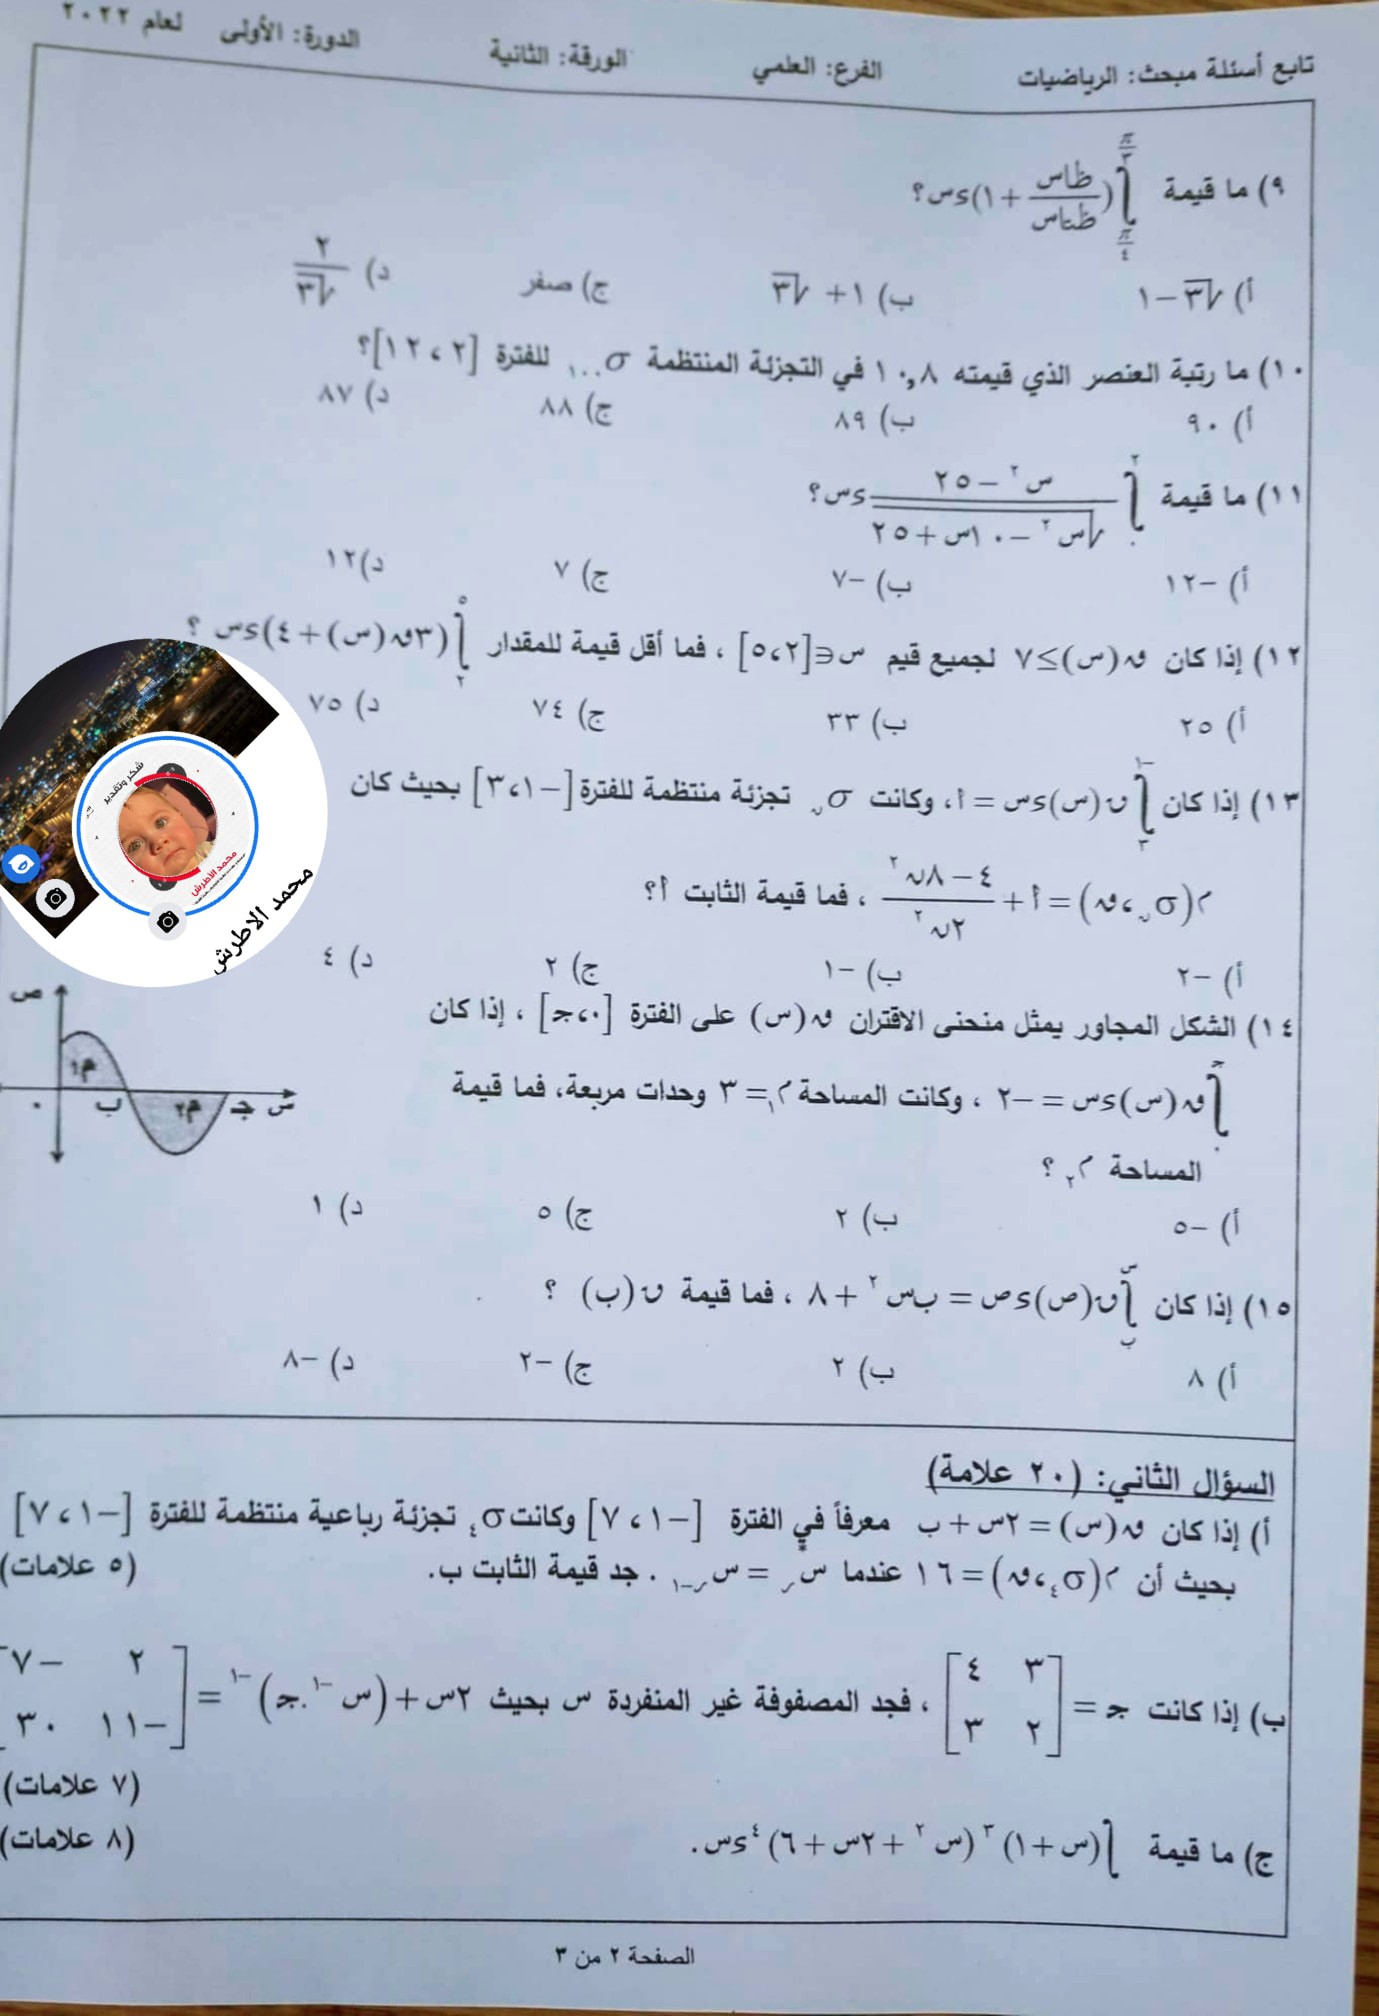 تابع أسئلة مبحث: الرياضيات الفرع: العلمي الورقة: الثانية الدورة: الأولى لعام ٢٠٢٢
٩) ما قيمة ∫ من π/٤ إلى π/٣ (ظاس/ظتاس + ١) ءس؟
أ) √٣ − ١ ب) ١ + √٣ ج) صفر د) ٢/√٣
١٠) ما رتبة العنصر الذي قيمته ١٠,٨ في التجزئة المنتظمة σ١٠٠ للفترة [٢ ، ١٢]؟
أ) ٩٠ ب) ٨٩ ج) ٨٨ د) ٨٧
١١) ما قيمة ∫ من ٠ إلى ٢ (س² − ٢٥)/√(س² − ١٠س + ٢٥) ءس؟
أ) −١٢ ب) −٧ ج) ٧ د) ١٢
١٢) إذا كان ق(س) ≥ ٧ لجميع قيم س ∈ [٢، ٥] ، فما أقل قيمة للمقدار ∫ من ٢ إلى ٥ (٣ق(س) + ٤) ءس ؟
أ) ٢٥ ب) ٣٣ ج) ٧٤ د) ٧٥
١٣) إذا كان ∫ من ٣ إلى −١ ق(س) ءس = أ، وكانت σن تجزئة منتظمة للفترة [−١، ٣] بحيث كان
م(σن، ق) = أ + (٤ − ٨ن²)/٢ن² ، فما قيمة الثابت أ؟
أ) −٢ ب) −١ ج) ٢ د) ٤
١٤) الشكل المجاور يمثل منحنى الاقتران ق(س) على الفترة [٠، جـ] ، إذا كان
∫ من ٠ إلى جـ ق(س) ءس = −٢ ، وكانت المساحة م١ = ٣ وحدات مربعة، فما قيمة
المساحة م٢ ؟
أ) −٥ ب) ٢ ج) ٥ د) ١
ص
م١ م٢
٠ ب جـ س
١٥) إذا كان ∫ من ب إلى س ق(ص) ءص = ب س² + ٨ ، فما قيمة ق(ب) ؟
أ) ٨ ب) ٢ ج) −٢ د) −٨
السؤال الثاني: (٢٠ علامة)
أ) إذا كان ق(س) = ٢س + ب معرفاً في الفترة [−١ ، ٧] وكانت σ٤ تجزئة رباعية منتظمة للفترة [−١ ، ٧]
بحيث أن م(σ٤، ق) = ١٦ عندما س*ر = س ر−١ . جد قيمة الثابت ب. (٥ علامات)
ب) إذا كانت جـ = [٣ ٤ ؛ ٢ ٣] ، فجد المصفوفة غير المنفردة س بحيث ٢س + (س⁻¹.جـ)⁻¹ = [٢ −٧ ؛ −١١ ٣٠]
(٧ علامات)
ج) ما قيمة ∫(س + ١)³ (س² + ٢س + ٦)⁴ ءس. (٨ علامات)
الصفحة ٢ من ٣
شكر وتقدير
محمد الأطرش
محمد الاطرش